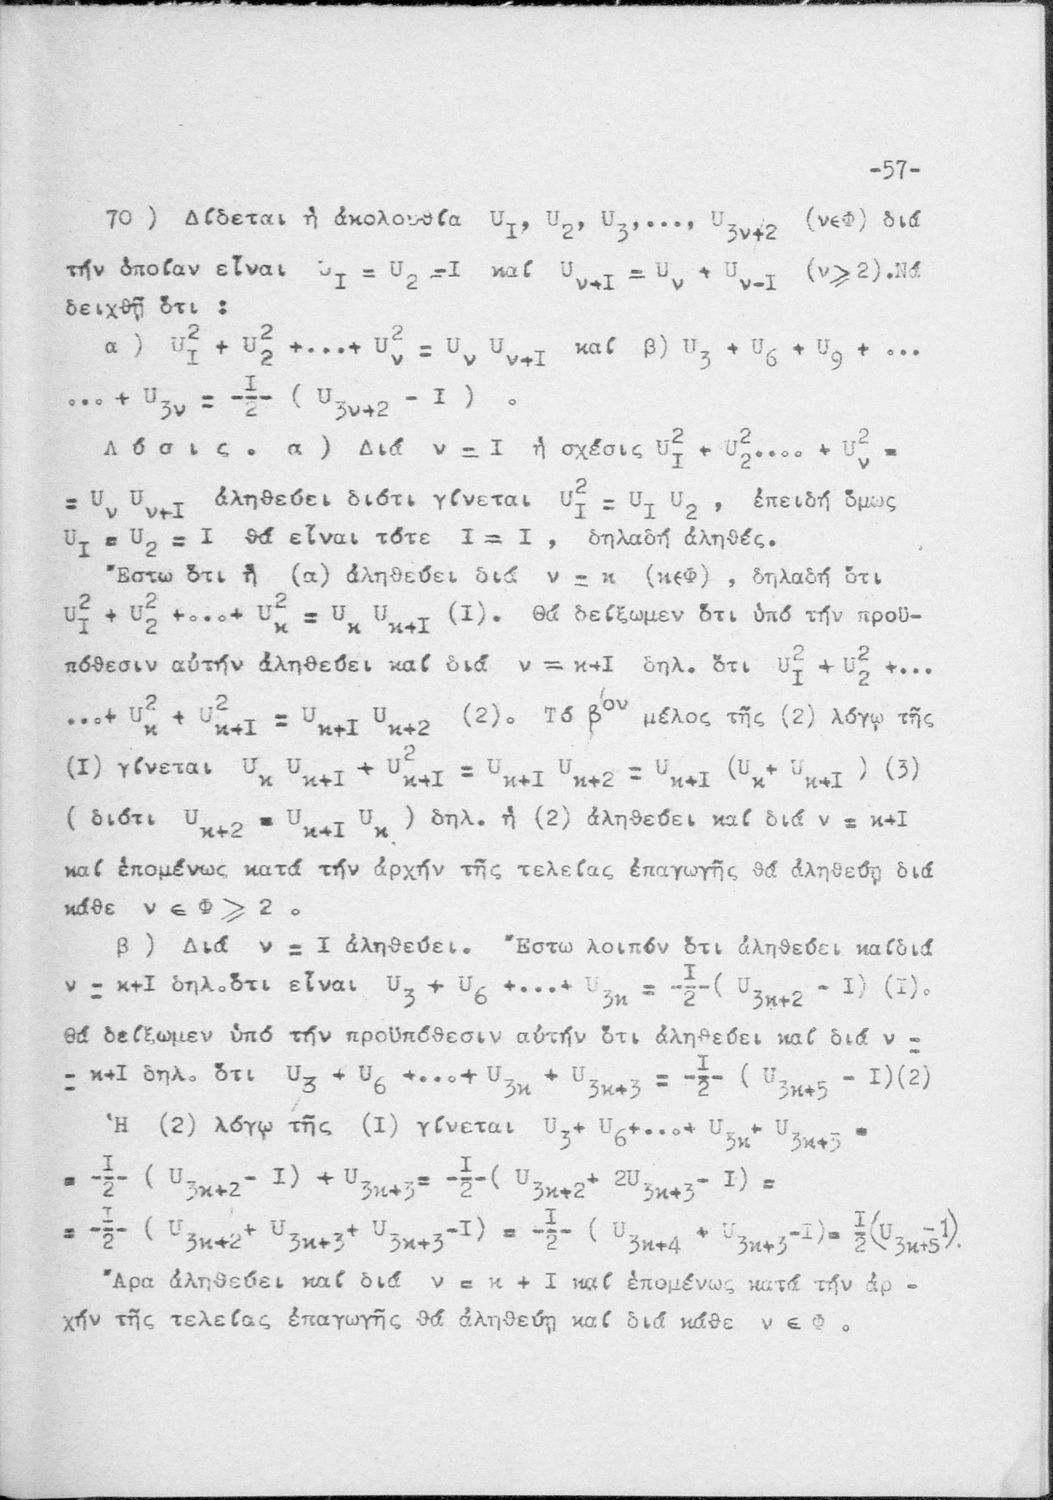 -57-
70 ) Δίδεται ἡ ἀκολουθία U_I, U_2, U_3,..., U_{3ν+2} (νεΦ) διά
τήν ὁποίαν εἶναι U_I = U_2 =I καί U_{ν+I} = U_ν + U_{ν-I} (ν⩾2).Νά
δειχθῇ ὅτι :
α ) U_I^2 + U_2^2 +...+ U_ν^2 = U_ν U_{ν+I} καί β) U_3 + U_6 + U_9 + ...
...+ U_{3ν} = -I/2- ( U_{3ν+2} - I ) .
Λ ύ σ ι ς . α ) Διά ν = I ἡ σχέσις U_I^2 + U_2^2.... + U_ν^2 =
= U_ν U_{ν+I} ἀληθεύει διότι γίνεται U_I^2 = U_I U_2 , ἐπειδή ὅμως
U_I = U_2 = I θά εἶναι τότε I = I , δηλαδή ἀληθές.
Ἔστω ὅτι ἡ (α) ἀληθεύει διά ν = κ (κεΦ) , δηλαδή ὅτι
U_I^2 + U_2^2 +...+ U_κ^2 = U_κ U_{κ+I} (I). Θά δείξωμεν ὅτι ὑπό τήν προϋ-
πόθεσιν αὐτήν ἀληθεύει καί διά ν = κ+I δηλ. ὅτι U_I^2 + U_2^2 +...
...+ U_κ^2 + U_{κ+I}^2 = U_{κ+I} U_{κ+2} (2). Τό β'^{ον} μέλος τῆς (2) λόγῳ τῆς
(I) γίνεται U_κ U_{κ+I} + U_{κ+I}^2 = U_{κ+I} U_{κ+2} = U_{κ+I} (U_κ+ U_{κ+I} ) (3)
( διότι U_{κ+2} = U_{κ+I} U_κ ) δηλ. ἡ (2) ἀληθεύει καί διά ν = κ+I
καί ἑπομένως κατά τήν ἀρχήν τῆς τελείας ἐπαγωγῆς θά ἀληθεύῃ διά
κάθε ν ε Φ ⩾ 2 .
β ) Διά ν = I ἀληθεύει. Ἔστω λοιπόν ὅτι ἀληθεύει καίδιά
ν = κ+I δηλ.ὅτι εἶναι U_3 + U_6 +...+ U_{3κ} = -I/2-( U_{3κ+2} - I) (I).
θά δείξωμεν ὑπό τήν προϋπόθεσιν αὐτήν ὅτι ἀληθεύει καί διά ν =
= κ+I δηλ. ὅτι U_3 + U_6 +...+ U_{3κ} + U_{3κ+3} = -I/2- ( U_{3κ+5} - I)(2)
Ἡ (2) λόγῳ τῆς (I) γίνεται U_3+ U_6+...+ U_{3κ}+ U_{3κ+3} =
= -I/2- ( U_{3κ+2}- I) + U_{3κ+3}= -I/2-( U_{3κ+2}+ 2U_{3κ+3}- I) =
= -I/2- ( U_{3κ+2}+ U_{3κ+3}+ U_{3κ+3}-I) = -I/2- ( U_{3κ+4} + U_{3κ+3}-I)= I/2(U_{3κ+5}-1).
Ἄρα ἀληθεύει καί διά ν = κ + I καί ἑπομένως κατά τήν ἀρ -
χήν τῆς τελείας ἐπαγωγῆς θά ἀληθεύῃ καί διά κάθε ν ε Φ .